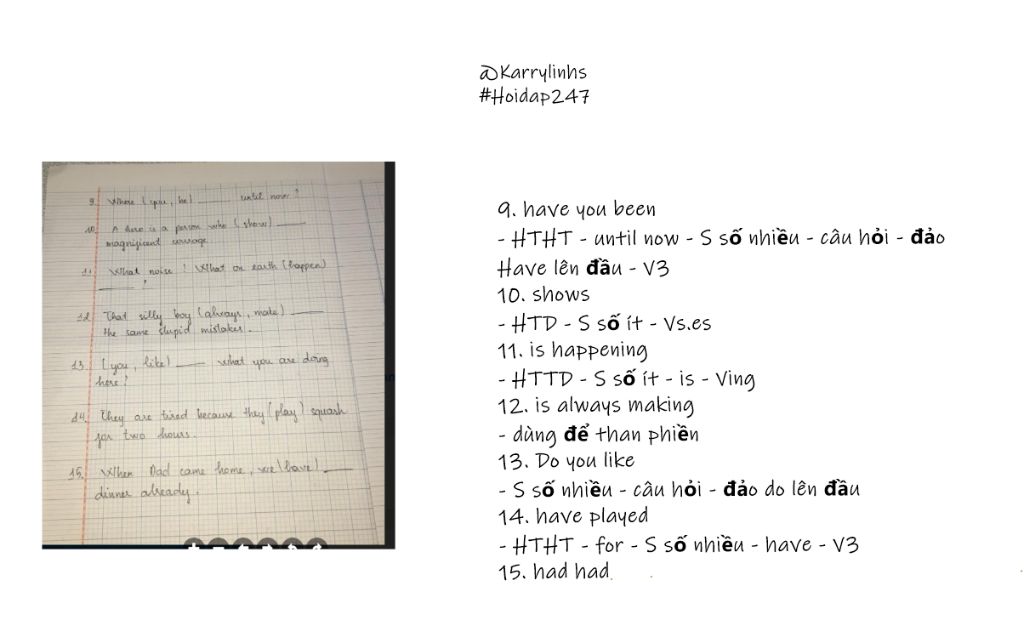 @Karrylinhs
#Hoidap247
9. Where (you, be) ______ until now?
10. A hero is a person who (show) ______
magnificent courage.
11. What noise! What on earth (happen)
______ ?
12. That silly boy (always, make) ______
the same stupid mistakes.
13. (you, like) ______ what you are doing
here?
14. They are tired because they (play) squash
for two hours.
15. When Dad came home, we (have) ______
dinner already.
9. have you been
- HTHT - until now - S số nhiều - câu hỏi - đảo
Have lên đầu - V3
10. shows
- HTD - S số ít - Vs.es
11. is happening
- HTTD - S số ít - is - Ving
12. is always making
- dùng để than phiền
13. Do you like
- S số nhiều - câu hỏi - đảo do lên đầu
14. have played
- HTHT - for - S số nhiều - have - V3
15. had had